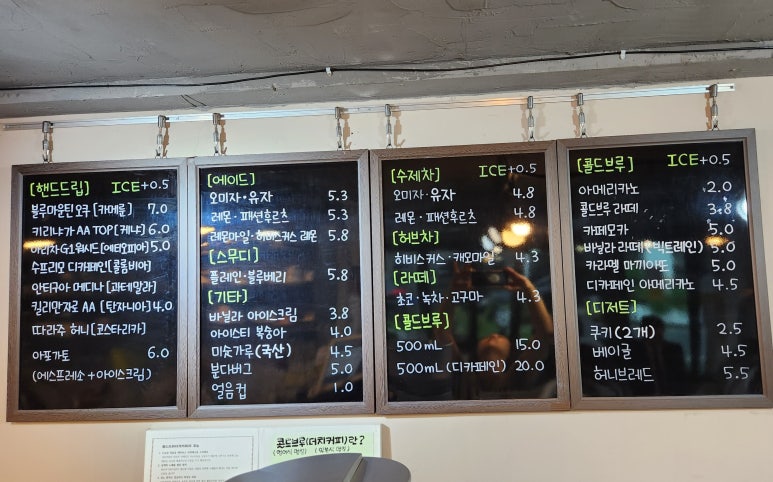 [핸드드립] ICE+0.5
블루마운틴 오쿠 [카메룬] 7.0
키리냐가 AA TOP [케냐] 6.0
G1 워시드 [에티오피아] 5.0
수프리모 디카페인 [콜롬비아]
안티구아 메디나 [과테말라]
킬리만자로 AA [탄자니아] 4.0
따라주 허니 [코스타리카]
아포가토 6.0
(에스프레소 + 아이스크림)
[에이드]
오미자 · 유자 5.3
레몬 · 패션후르츠 5.3
레몬마일 · 히비스커스 레몬 5.8
[스무디]
플레인 · 블루베리 5.8
[기타]
바닐라 아이스크림 3.8
아이스티 복숭아 4.0
미숫가루 (국산) 4.5
분다버그 5.0
얼음컵 1.0
[수제차] ICE+0.5
오미자 · 유자 4.8
레몬 · 패션후르츠 4.8
[허브차]
히비스커스 · 캐모마일 4.3
[라떼]
초코 · 녹차 · 고구마 4.3
[콜드브루]
500mL 15.0
500mL (디카페인) 20.0
[콜드브루] ICE+0.5
아메리카노 2.0
콜드브루 라떼 3.8
카페모카 5.0
바닐라 라떼 (빅트레인) 5.0
카라멜 마끼아또 5.0
디카페인 아메리카노 4.5
[디저트]
쿠키 (2개) 2.5
베이글 4.5
허니브레드 5.5
콜드브루(더치커피)란?